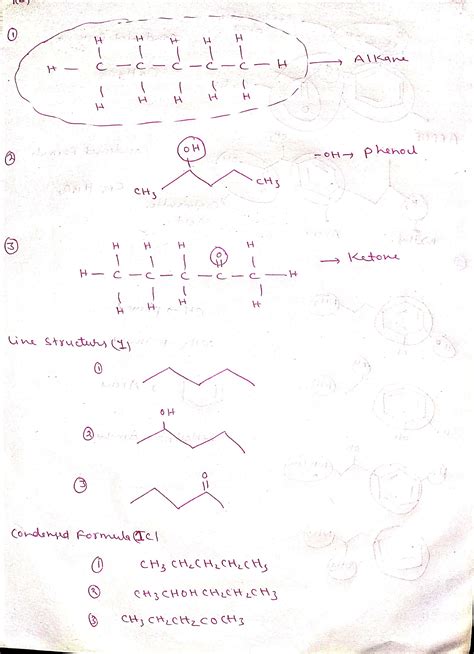 ①
H H H H H
H – C – C – C – C – C – H → Alkane
H H H H H
② OH -OH → phenol
CH₃ CH₃
③ H H H O H
H – C – C – C – C – C – H → Ketone
H H H H
Line Structurs (I)
①
② OH
③ O
Condensed Formula (Ic)
① CH₃ CH₂CH₂CH₂CH₃
② CH₃CHOH CH₂CH₂CH₃
③ CH₃CH₂CH₂COCH₃